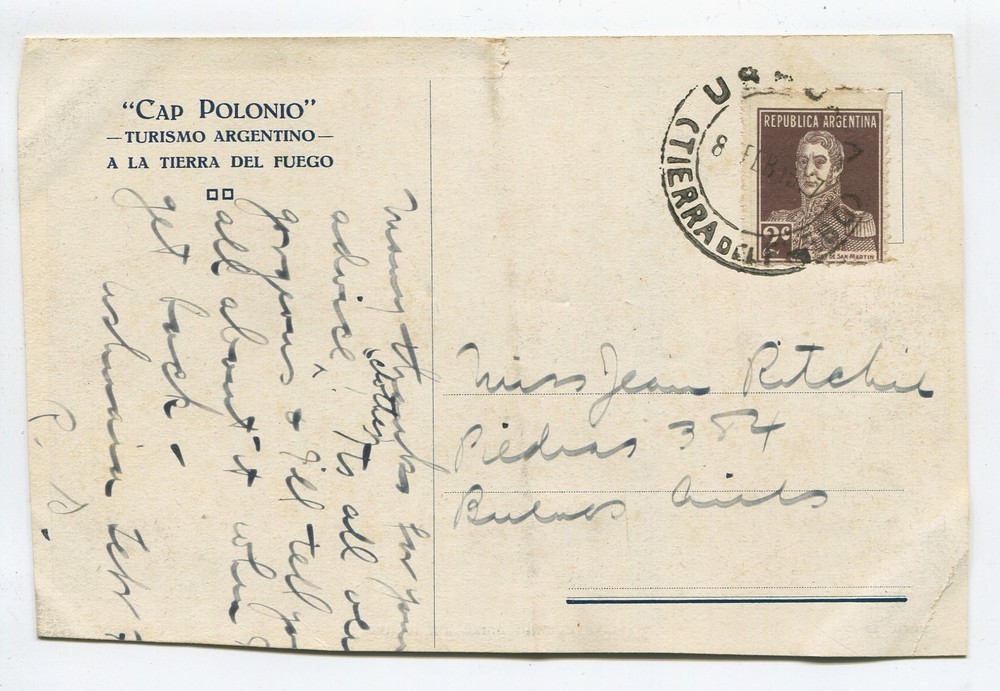 "CAP POLONIO"
—TURISMO ARGENTINO—
A LA TIERRA DEL FUEGO
Many thanks for your
clothes
advice ^ Its all over
gorgeous & I'll tell you
all about it when I
get back –
Ushuaia Feb 7
R. S.
(TIERRA DEL
8 FEB
REPUBLICA ARGENTINA
2c
JOSÉ DE SAN MARTIN
Miss Jean Ritchie
Piedras 384
Buenos Aires